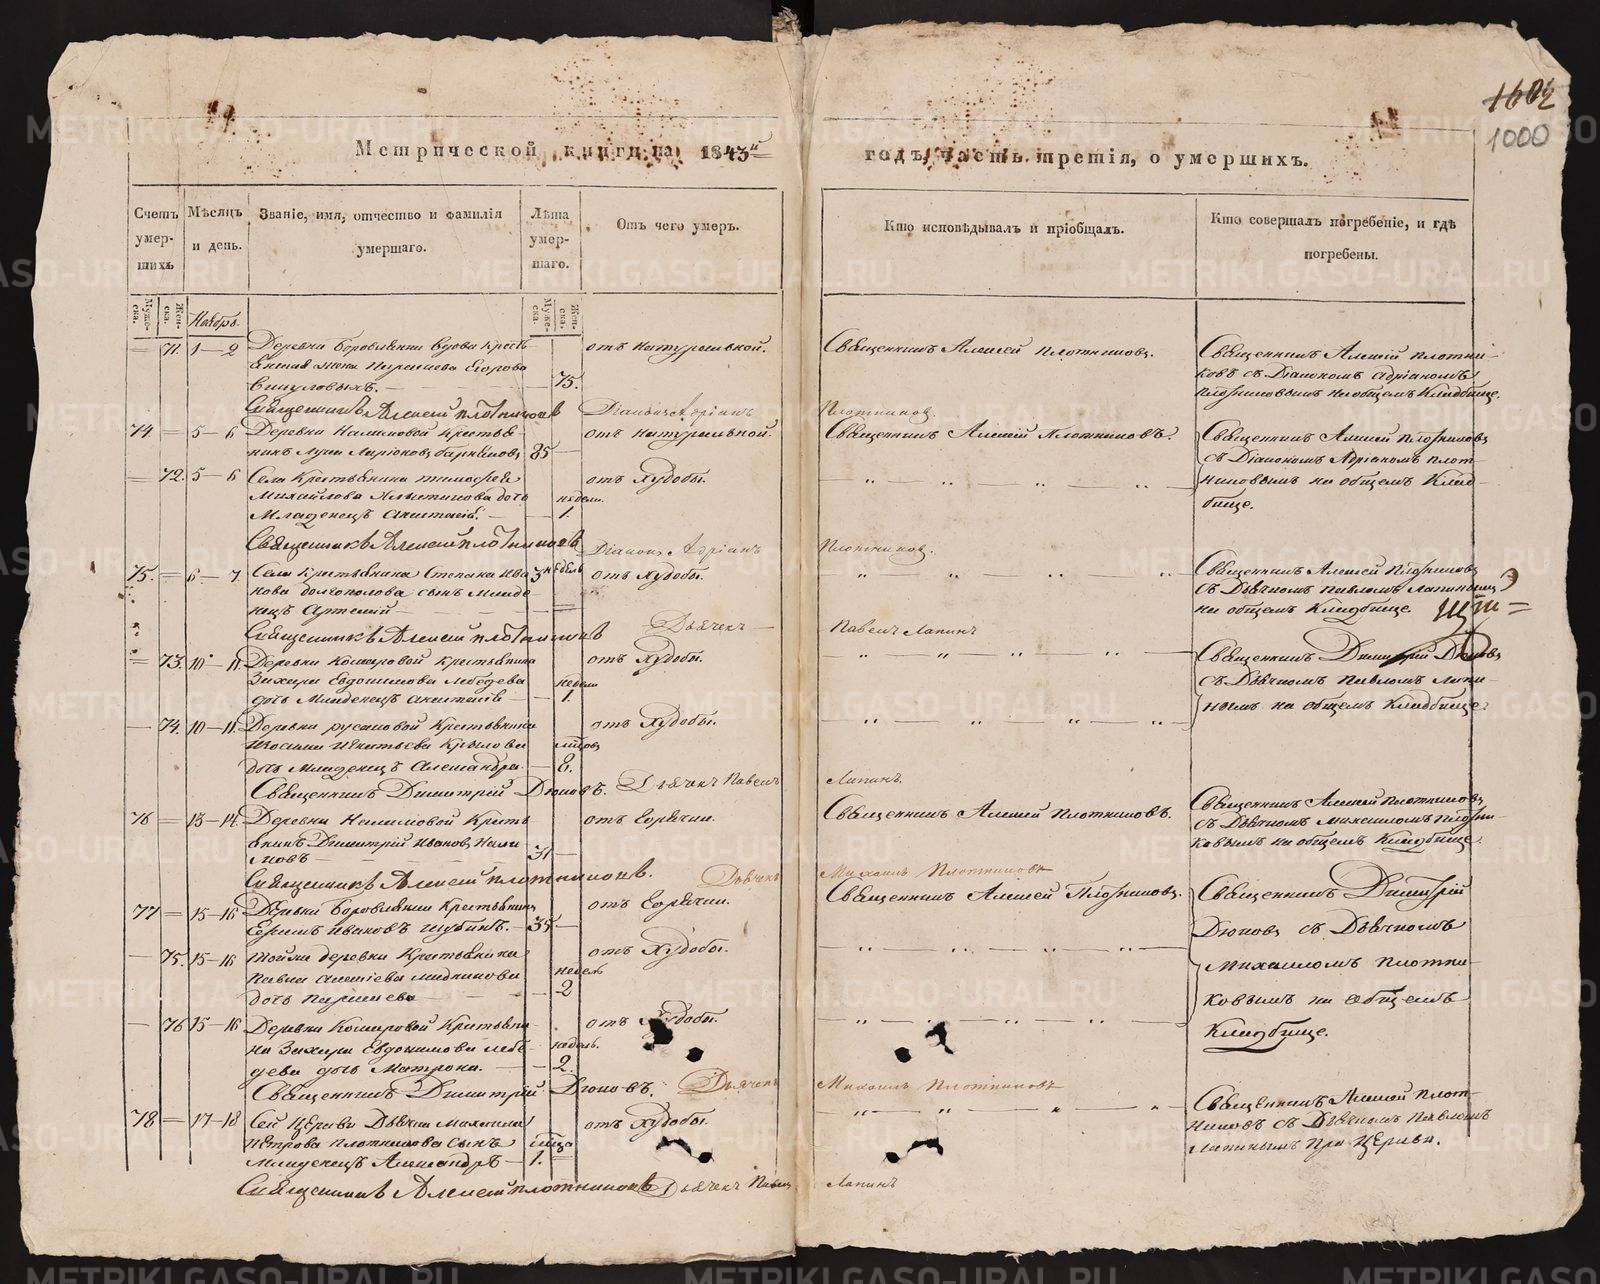 1602
1000
Метрической книги на 1843й
годъ, часть третія, о умершихъ.
Счетъ умер-шихъ
Мѣсяцъ и день.
Званіе, имя, отчество и фамилія умершаго.
Лѣта умер-шаго.
Отъ чего умеръ.
Кто исповѣдывалъ и пріобщалъ.
Кто совершалъ погребеніе, и гдѣ погребены.
Муже-ска.
Жен-ска.
Ноябрь.
Муже-ска.
Жен-ска.
71. 1–2 Деревни Боровлянки вдова Кресть-
янская жена Параскева Егорова
75.
отъ натуральной.
Священникъ Алексѣй Плотниковъ.
Священникъ Алексѣй Плотни-
ковъ съ Діакономъ Адріаномъ
Плотниковымъ на общемъ Кладбище.
Священникъ Алексѣй Плотниковъ Діаконъ Адріанъ Плотниковъ.
74 5–6 Деревни Налимовой Крестья-
нинъ Лука Ларіоновъ 85
отъ натуральной.
Священникъ Алексѣй Плотниковъ.
Священникъ Алексѣй Плотниковъ
съ Діакономъ Адріаномъ Плот-
никовымъ на общемъ Клад-
бище.
72. 5–6 Села Крестьянина Тимофея
Михайлова дочь
Младенецъ Анастасія.
недели 1.
отъ Худобы.
Священникъ Алексѣй Плотниковъ Діаконъ Адріанъ Плотниковъ.
75. 6–7 Села Крестьянина Степана Ива-
нова Долгополова сынъ Младе-
нецъ Артемій
3 недель
отъ Худобы.
Священникъ Алексѣй Плотниковъ
съ Дьячкомъ Павломъ Лапинымъ
на общемъ Кладбище.
Священникъ Алексѣй Плотниковъ Дьячекъ Павелъ Лапинъ
73. 10–11. Деревни Комаровой Крестьянина
Захара Евдокимова Лебедева
дочь Младенецъ Анастасія
недели 1.
отъ Худобы.
Священникъ Димитрій Дюковъ
съ Дьячкомъ Павломъ Лапи-
нымъ на общемъ Кладбище.
74. 10–11. Деревни Русаковой Крестьянина
Игнатьева Крылова
дочь Младенецъ Александра
8.
отъ Худобы.
Священникъ Димитрій Дюковъ. Дьячекъ Павелъ Лапинъ.
76 13–14. Деревни Налимовой Кресть-
янинъ Димитрій Ивановъ Нали-
мовъ 31
отъ Горячки.
Священникъ Алексѣй Плотниковъ.
Священникъ Алексѣй Плотниковъ
съ Дьячкомъ Михаиломъ Плотни-
ковымъ на общемъ Кладбище.
Священникъ Алексѣй Плотниковъ. Дьячекъ Михаилъ Плотниковъ
77 15–16 Деревни Боровлянки Крестьянинъ
Ивановъ Шубинъ. 35
отъ Горячки.
Священникъ Алексѣй Плотниковъ.
Священникъ Димитрій
Дюковъ съ Дьячкомъ
Михаиломъ Плотни-
ковымъ на общемъ
Кладбище.
75. 15–16 Той же деревни Крестьянина
Павла Алексіева
дочь Параскева
недель 2
отъ Худобы.
76 15–16 Деревни Комаровой Крестьяни-
на Захара Евдокимова Лебе-
дева дочь Матрона.
недель. 2.
отъ Худобы.
Священникъ Димитрій Дюковъ. Дьячекъ Михаилъ Плотниковъ
78 17–18 Сей Церкви Дьячка Михаила
Петрова Плотникова Сынъ
Младенецъ Александръ
1.
отъ Худобы.
Священникъ Алексѣй Плот-
никовъ съ Дьячкомъ Павломъ
Лапинымъ при Церкви.
Священникъ Алексѣй Плотниковъ Дьячекъ Павелъ Лапинъ
METRIKI.GASO-URAL.RU